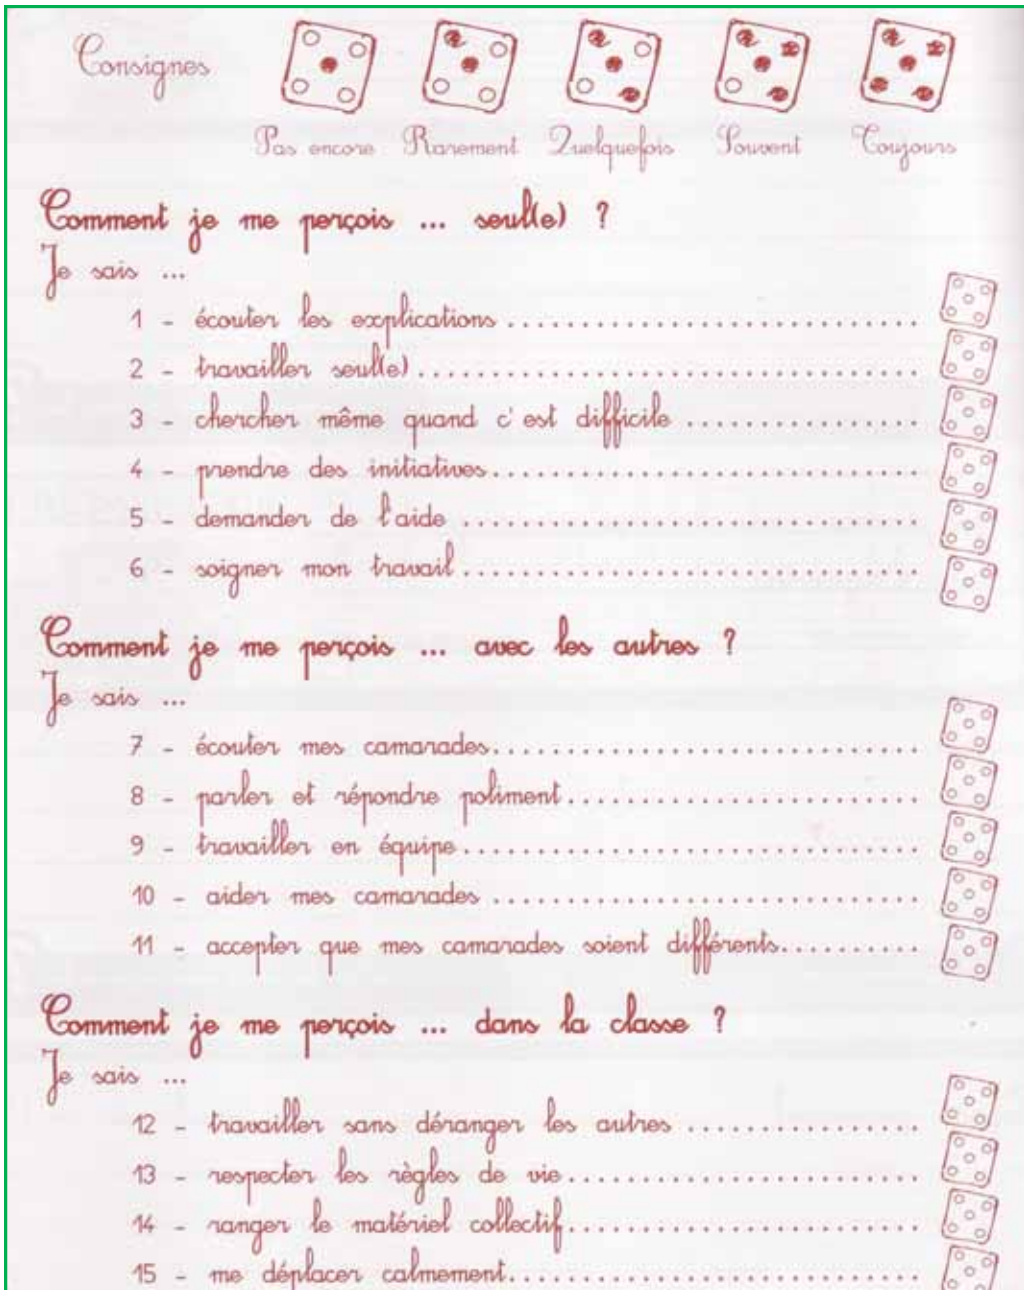 Consignes
Pas encore Rarement Quelquefois Souvent Toujours
Comment je me perçois ... seul(e) ?
Je sais ...
1 - écouter les explications ........................................
2 - travailler seul(e) ........................................
3 - chercher même quand c'est difficile ....................
4 - prendre des initiatives ........................................
5 - demander de l'aide ........................................
6 - soigner mon travail ........................................
Comment je me perçois ... avec les autres ?
Je sais ...
7 - écouter mes camarades ........................................
8 - parler et répondre poliment ..............................
9 - travailler en équipe ........................................
10 - aider mes camarades ........................................
11 - accepter que mes camarades soient différents ..........
Comment je me perçois ... dans la classe ?
Je sais ...
12 - travailler sans déranger les autres ....................
13 - respecter les règles de vie ..............................
14 - ranger le matériel collectif ..............................
15 - me déplacer calmement ..............................